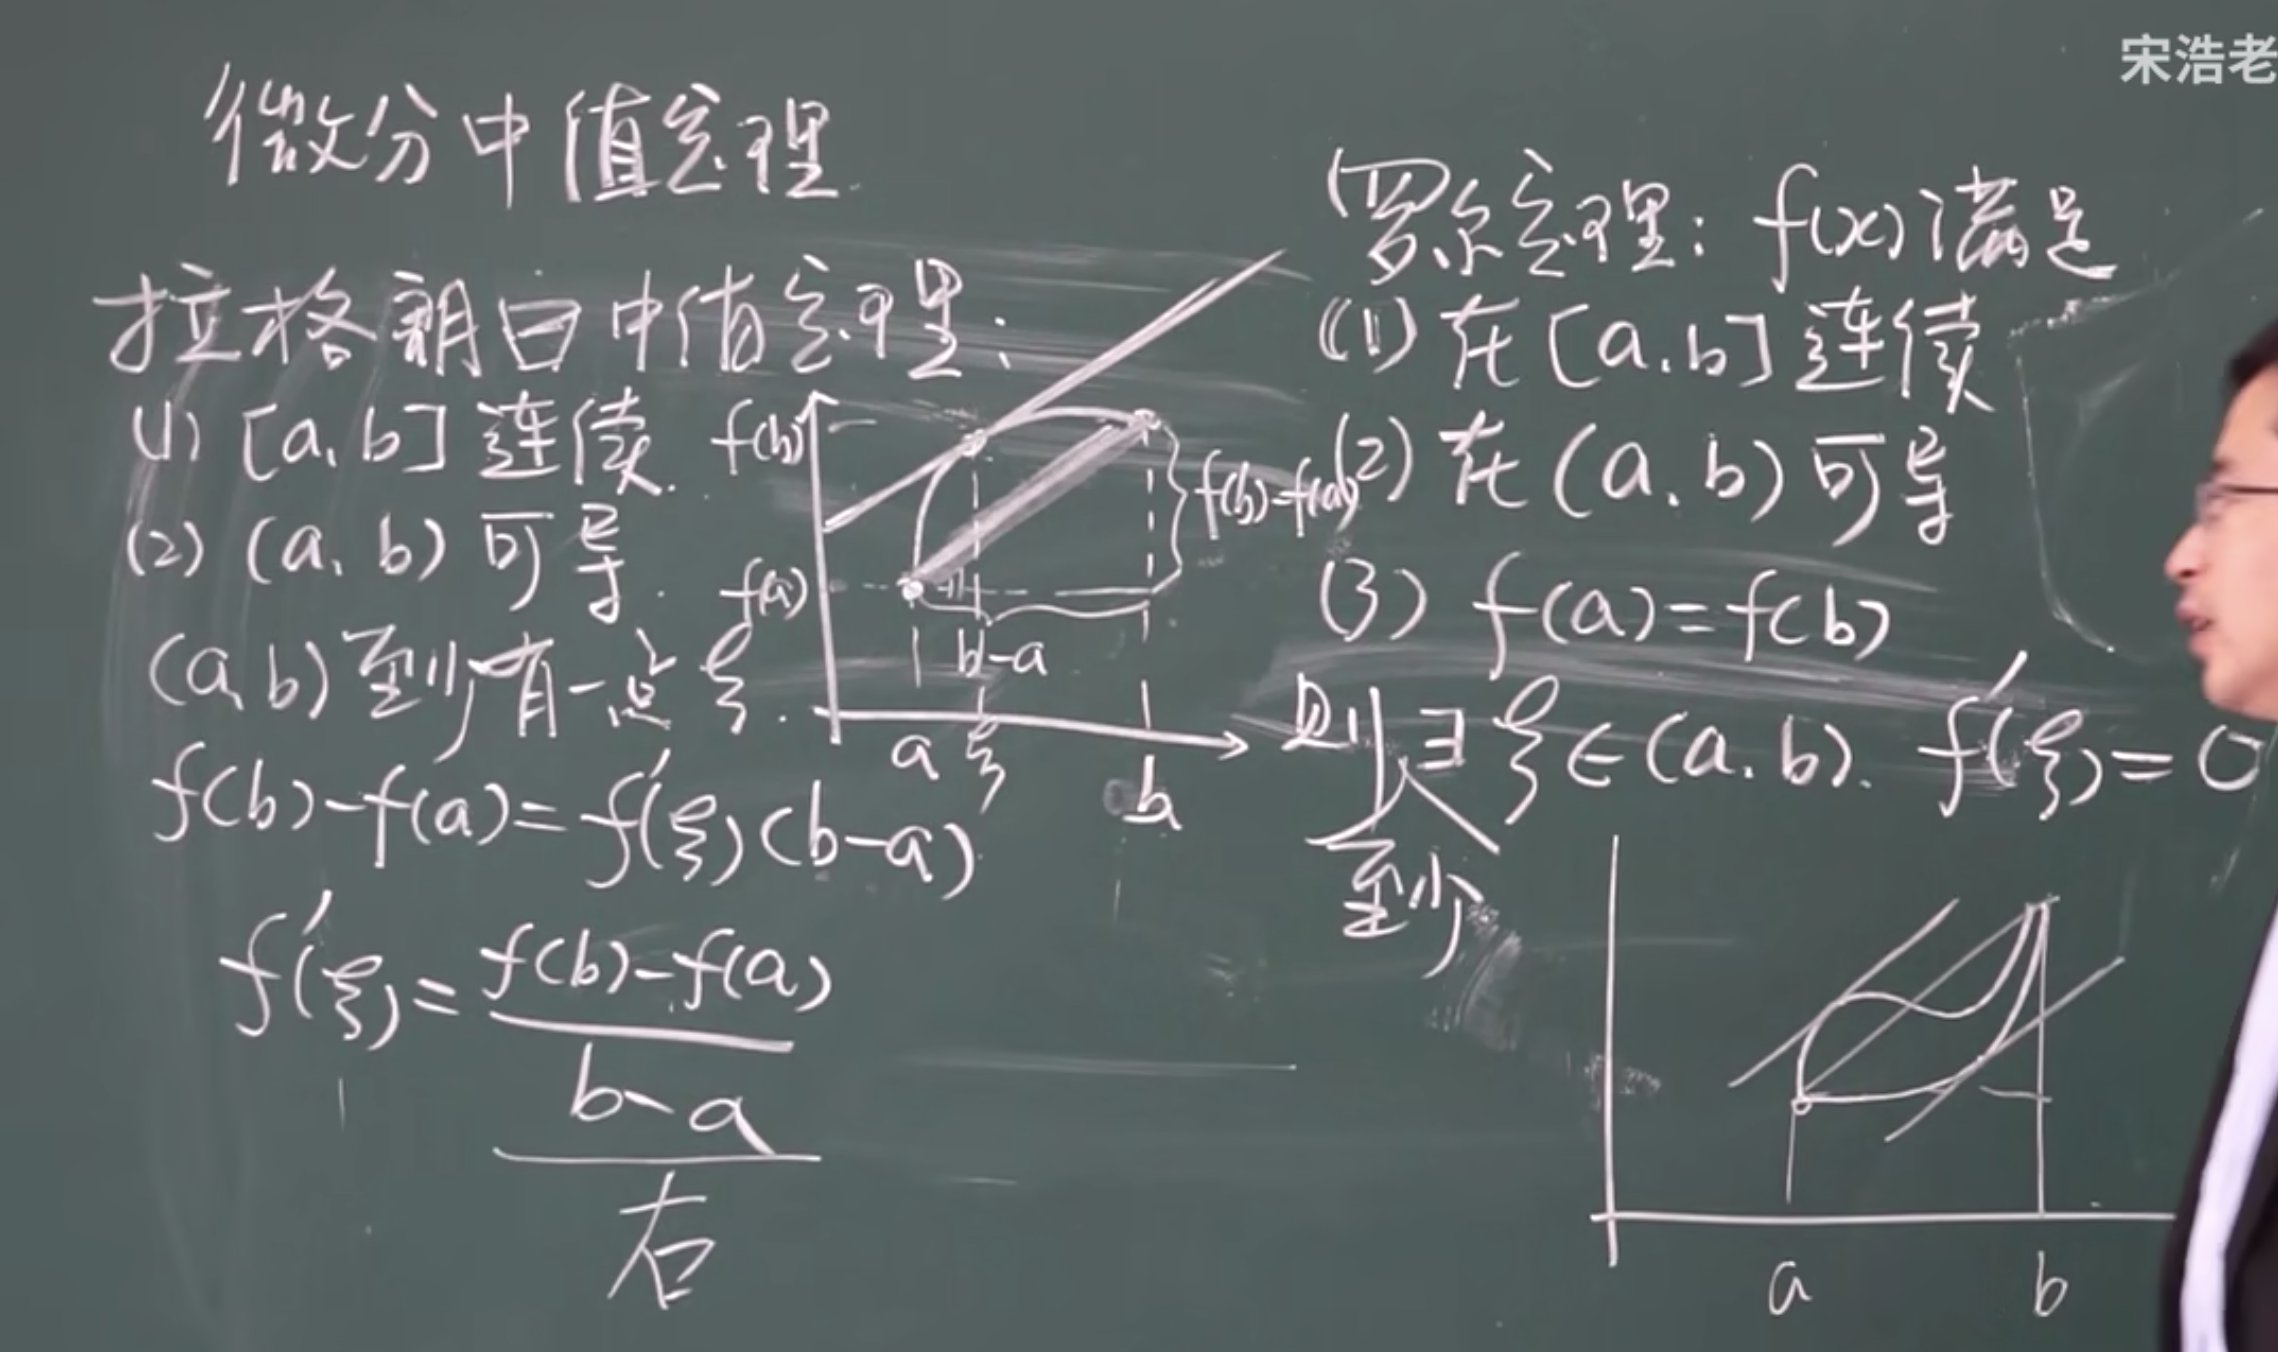 宋浩老
微分中值定理
拉格朗日中值定理:
(1) [a, b] 连续.
(2) (a, b) 可导.
(a, b) 至少有一点 ξ.
f(b)-f(a)=f′(ξ)(b-a)
f′(ξ)=
f(b)-f(a)
b-a
右
f(b)
f(a)
f(b)-f(a)
b-a
a ξ b
罗尔定理: f(x)满足
(1) 在 [a, b] 连续
(2) 在 (a, b) 可导
(3) f(a)=f(b)
则 ∃ ξ∈(a, b). f′(ξ)=0
至少
a b